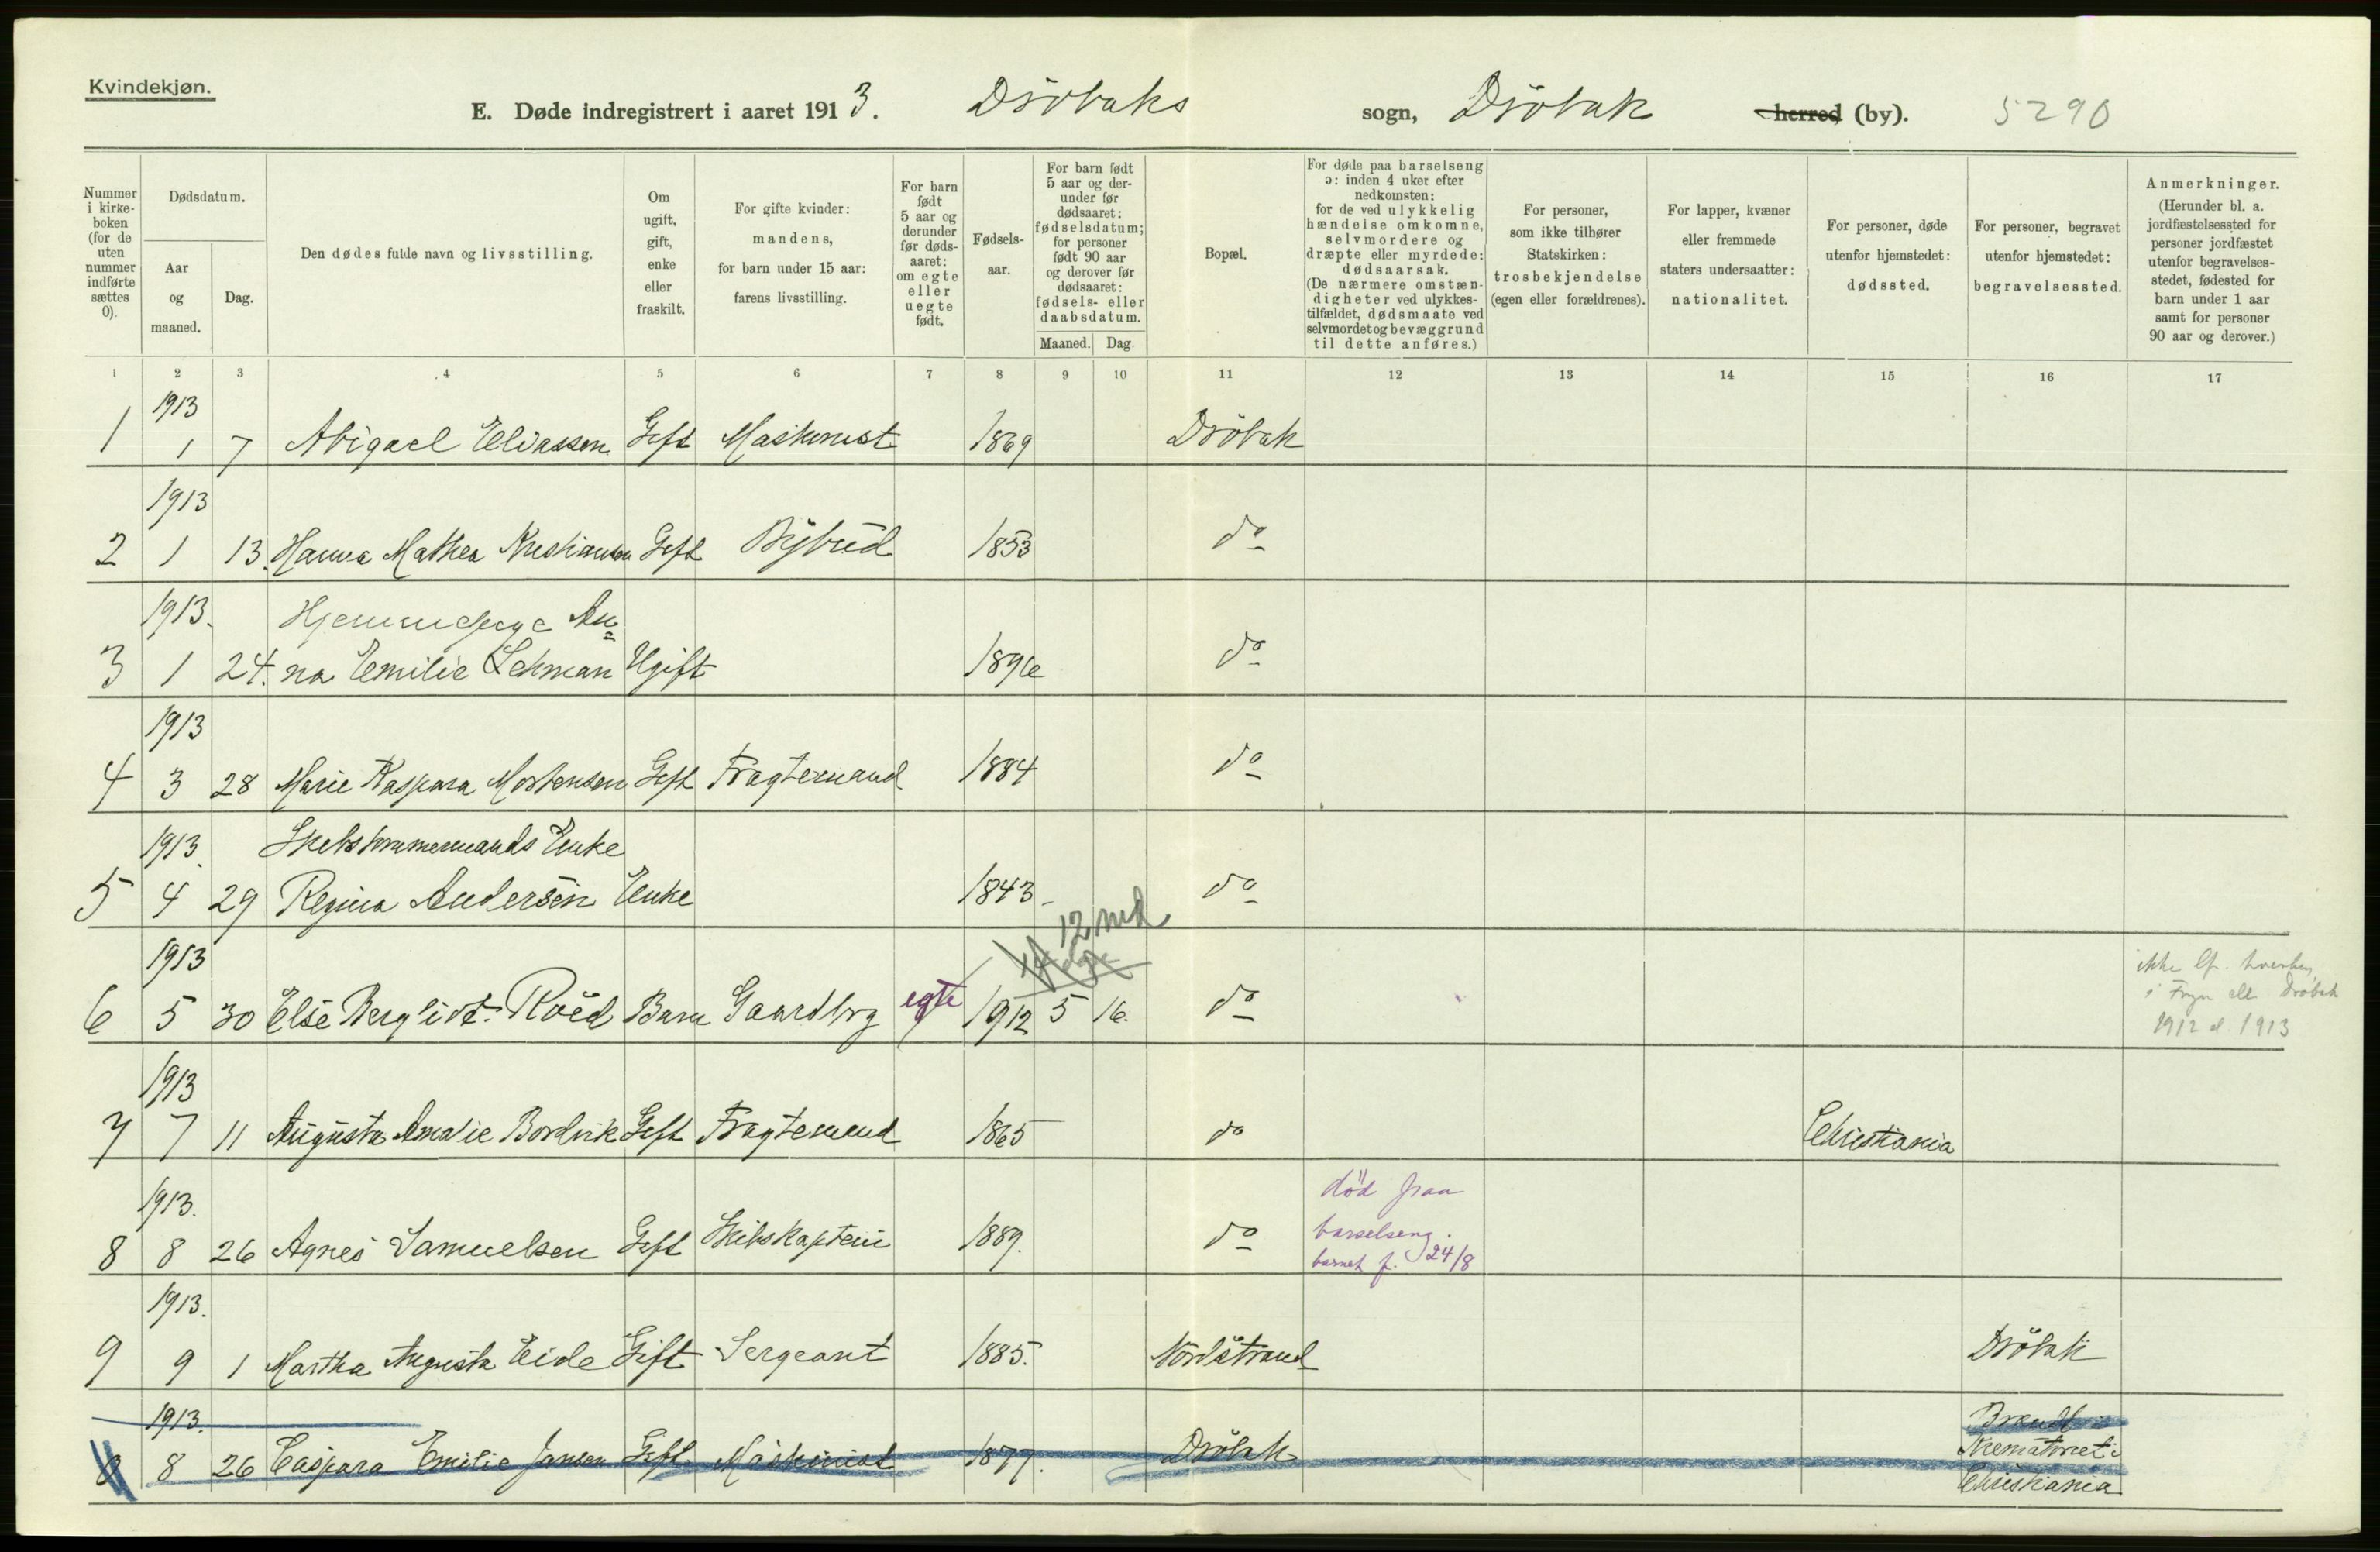 Kvindekjøn.
E. Døde indregistrert i aaret 1913. Drøbaks sogn, Drøbak herred (by). 5290
Nummer i kirke-boken (for de uten nummer indførte sættes 0).
Dødsdatum.
Aar og maaned.
Dag.
Den dødes fulde navn og livsstilling.
Om ugift, gift, enke eller fraskilt.
For gifte kvinder: mandens, for barn under 15 aar: farens livsstilling.
For barn født 5 aar og derunder før døds-aaret: om egte eller uegte født.
Fødsels-aar.
For barn født 5 aar og der-under før dødsaaret: fødselsdatum; for personer født 90 aar og derover før dødsaaret: fødsels- eller daabsdatum.
Maaned. Dag.
Bopæl.
For døde paa barselseng ɔ: inden 4 uker efter nedkomsten: for de ved ulykkelig hændelse omkomne, selvmordere og dræpte eller myrdede: dødsaarsak. (De nærmere omstæn-digheter ved ulykkes-tilfældet, dødsmaate ved selvmordet og bevæggrund til dette anføres.)
For personer, som ikke tilhører Statskirken: trosbekjendelse (egen eller forældrenes).
For lapper, kvæner eller fremmede staters undersaatter: nationalitet.
For personer, døde utenfor hjemstedet: dødssted.
For personer, begravet utenfor hjemstedet: begravelsessted.
Anmerkninger. (Herunder bl. a. jordfæstelsessted for personer jordfæstet utenfor begravelses-stedet, fødested for barn under 1 aar samt for personer 90 aar og derover.)
1 2 3 4 5 6 7 8 9 10 11 12 13 14 15 16 17
1913
1 1 7 Abigael Eliassen Gift Maskinist 1869 Drøbak
1913
2 1 13. Hanna Mathea Kristiansen Gift Bybud 1853 do
1913. Hjemmepige An=
3 1 24. na Emilie Lehman Ugift 1896 do
1913
4 3 28 Marie Kaspara Mortensen Gift Fragtemand 1884 do
1913. Skibstømmermands Enke
5 4 29 Regina Andersen Enke 1843 do
12 md
1913
6 5 30 Else Bergliot Røed Barn Gaardbrg egte 1912 5 16. do
ikke
i Frogn ell Drøbak
1912 el 1913
1913
7 7 11 Augusta Amalie Bordvik Gift Fragtemand 1865 do Christiania
1913.
8 8 26 Agnes Samuelsen Gift Skibskaptein 1889. do
död paa
barselseng.
barnet f. 24/8
1913.
9 9 1 Martha Augusta Eide Gift Sergeant 1885. Nordstrand Drøbak
1913.
0 8 26 Caspara Emilie Jansen Gift Maskinist 1877. Drøbak
Brændt
Krematoriet i
Christiania